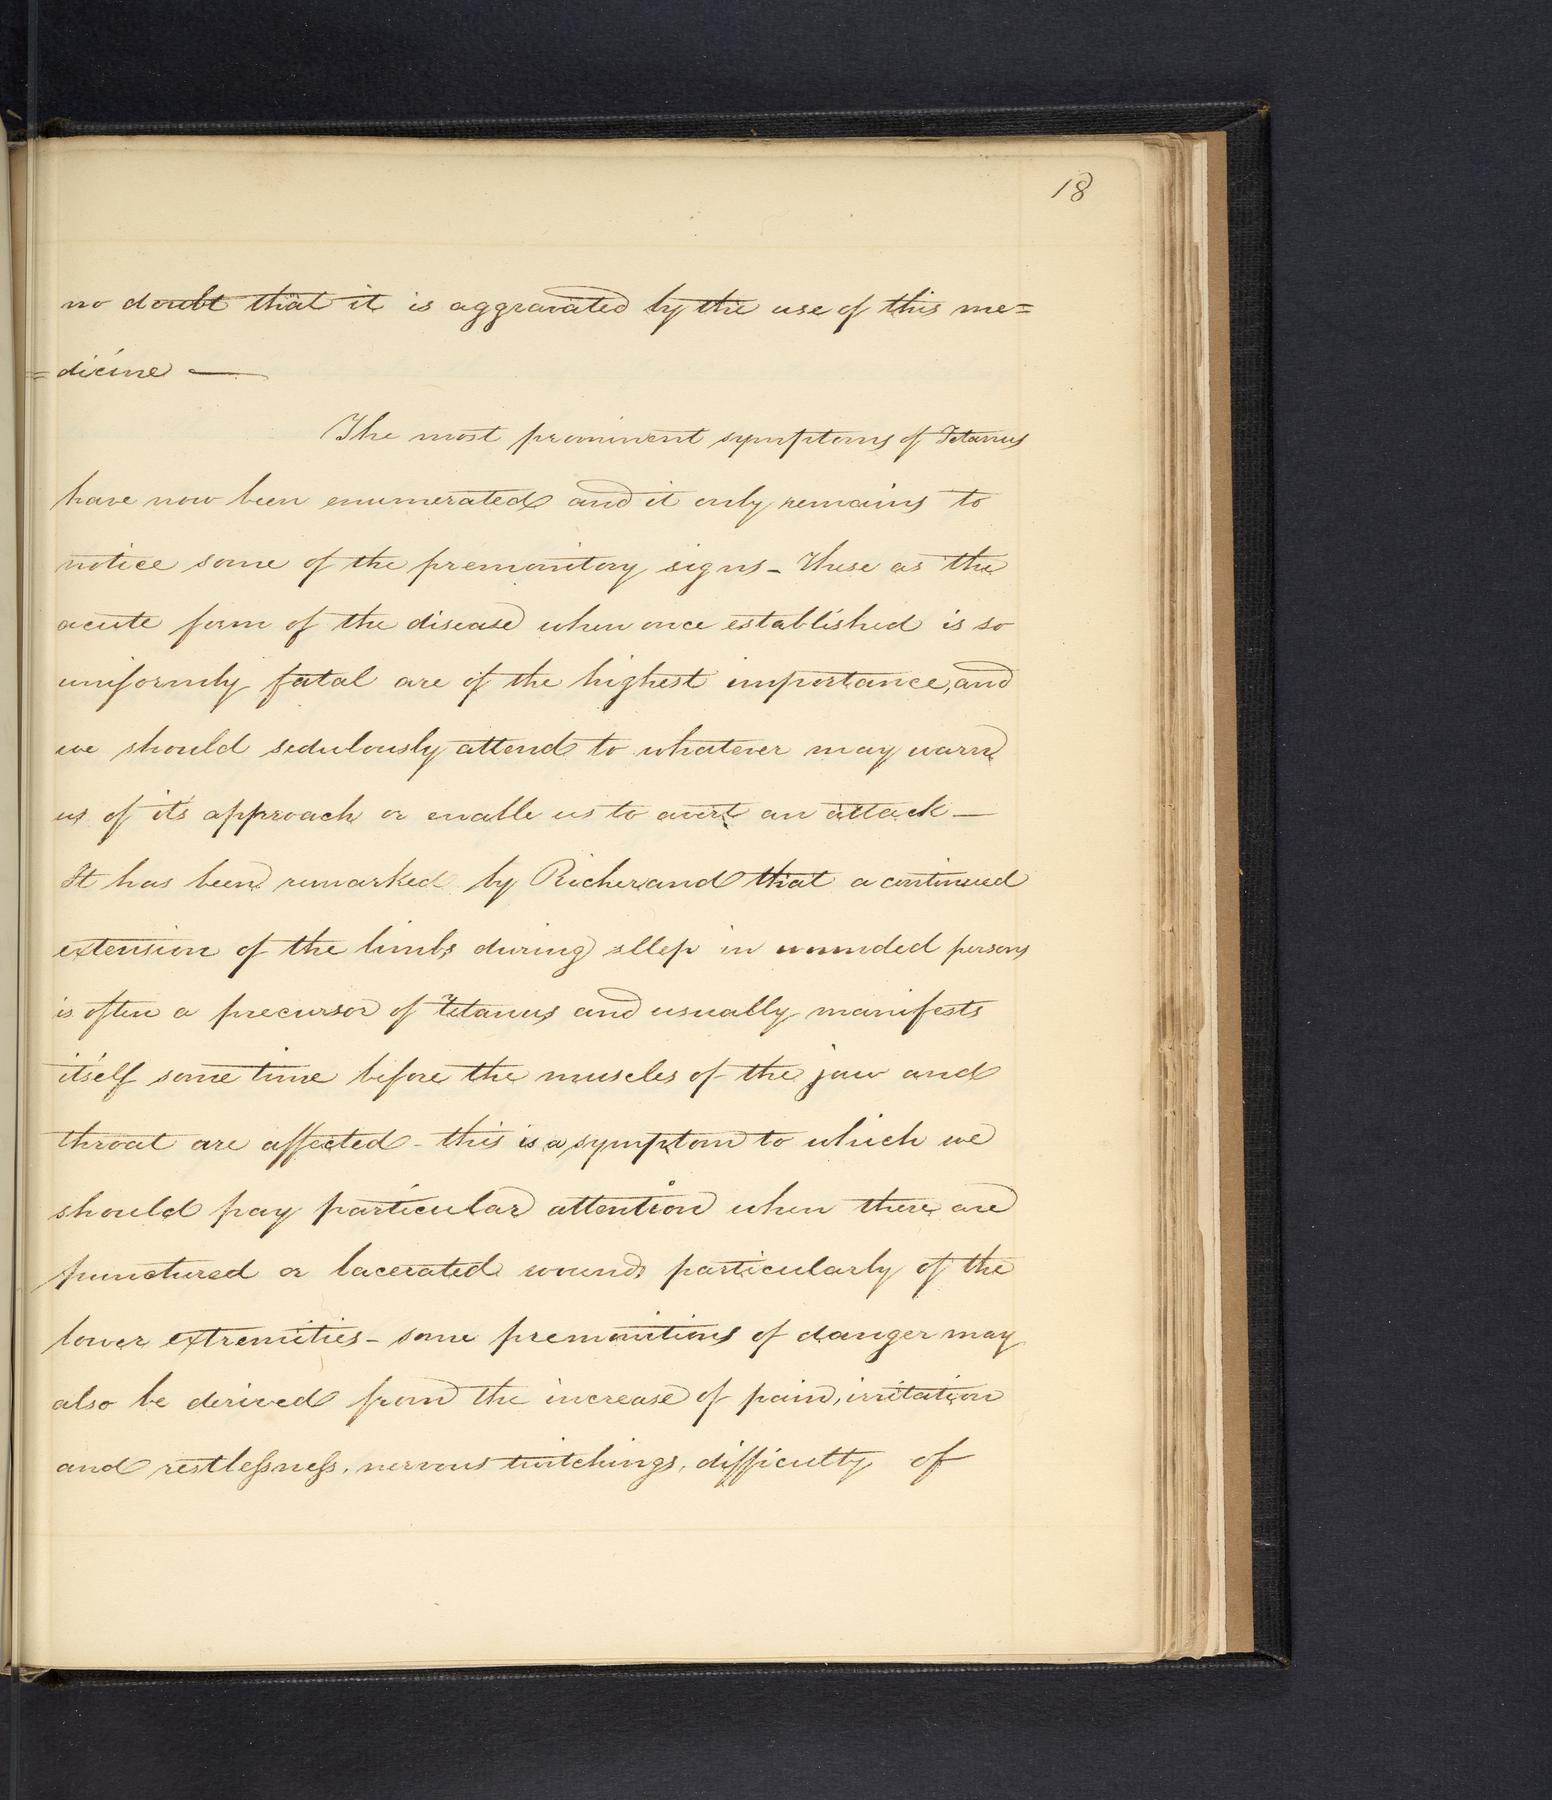 18
no doubt that it is aggravated by the use of this me=
=dicine —
The most prominent symptoms of Tetanus
have now been enumerated and it only remains to
notice some of the premonitory signs - These as the
acute form of the disease when once established is so
uniformly fatal are of the highest importance, and
we should sedulously attend to whatever may warn
us of it's approach or enable us to avert an attack —
It has been remarked by Richerand that a continued
extension of the limbs during sllep in wounded persons
is often a precursor of Tetanus and usually manifests
itself some time before the muscles of the jaw and
throat are affected - this is a symptom to which we
should pay particular attention when there are
punctured or lacerated wounds particularly of the
lower extremities - some premonitions of danger may
also be derived from the increase of pain, irritation
and restlessness, nervous twitchings, difficulty of